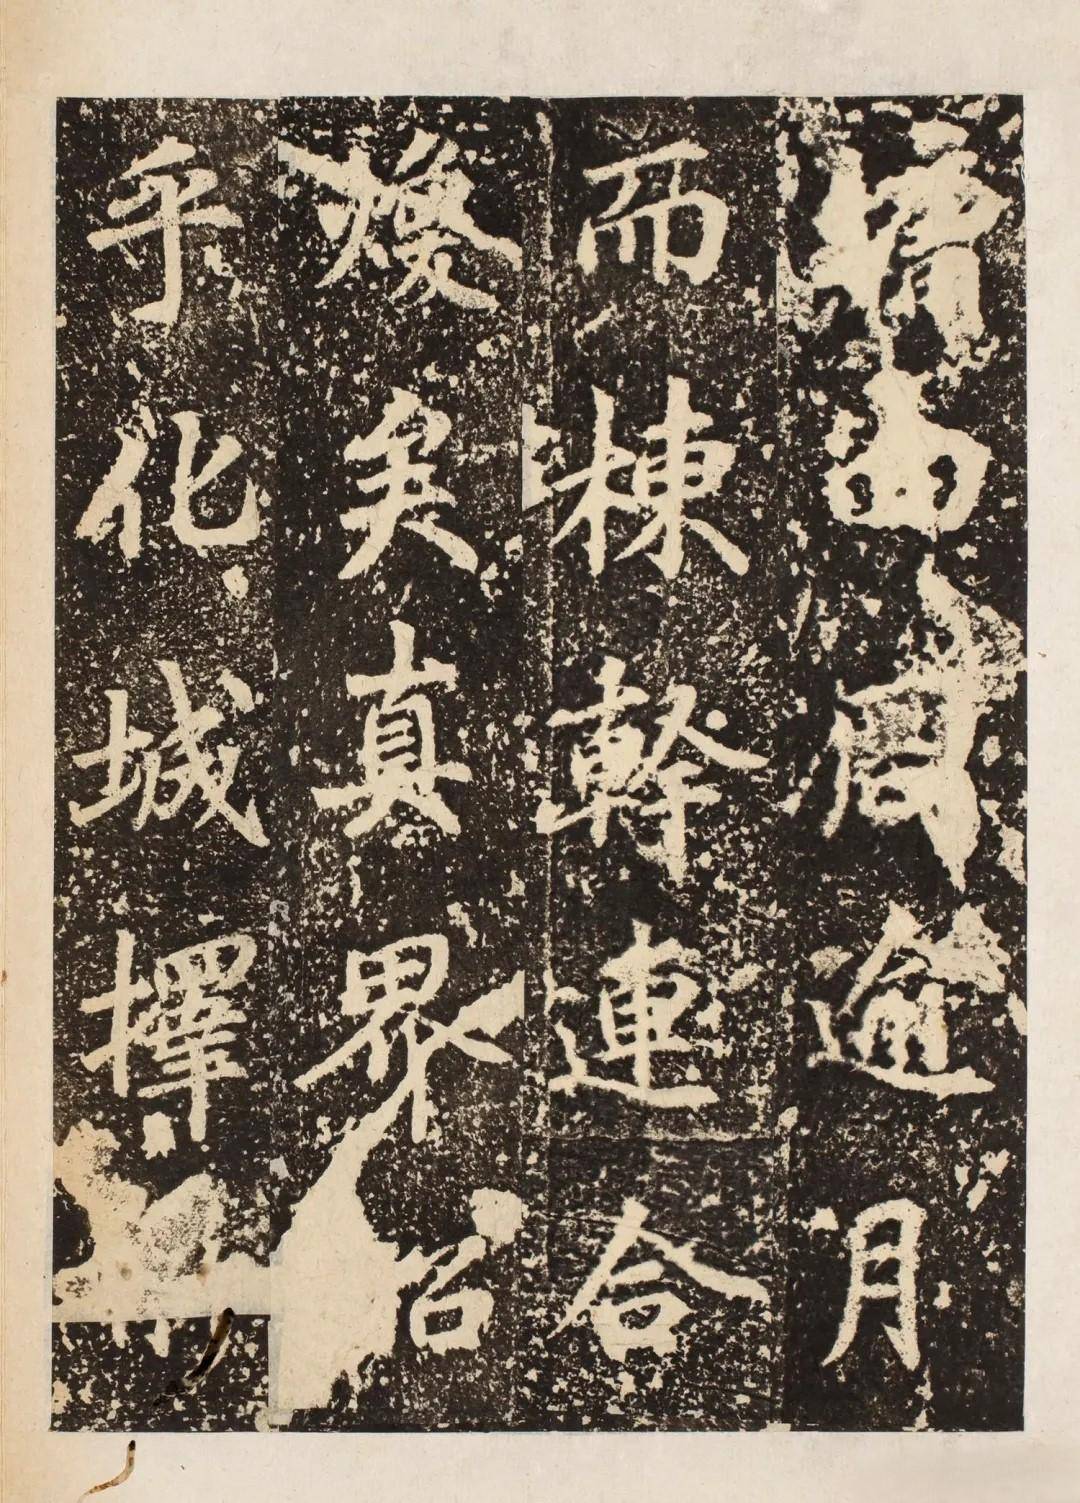 逾月
而棟幹連合
煥矣真界昭
乎化城擇